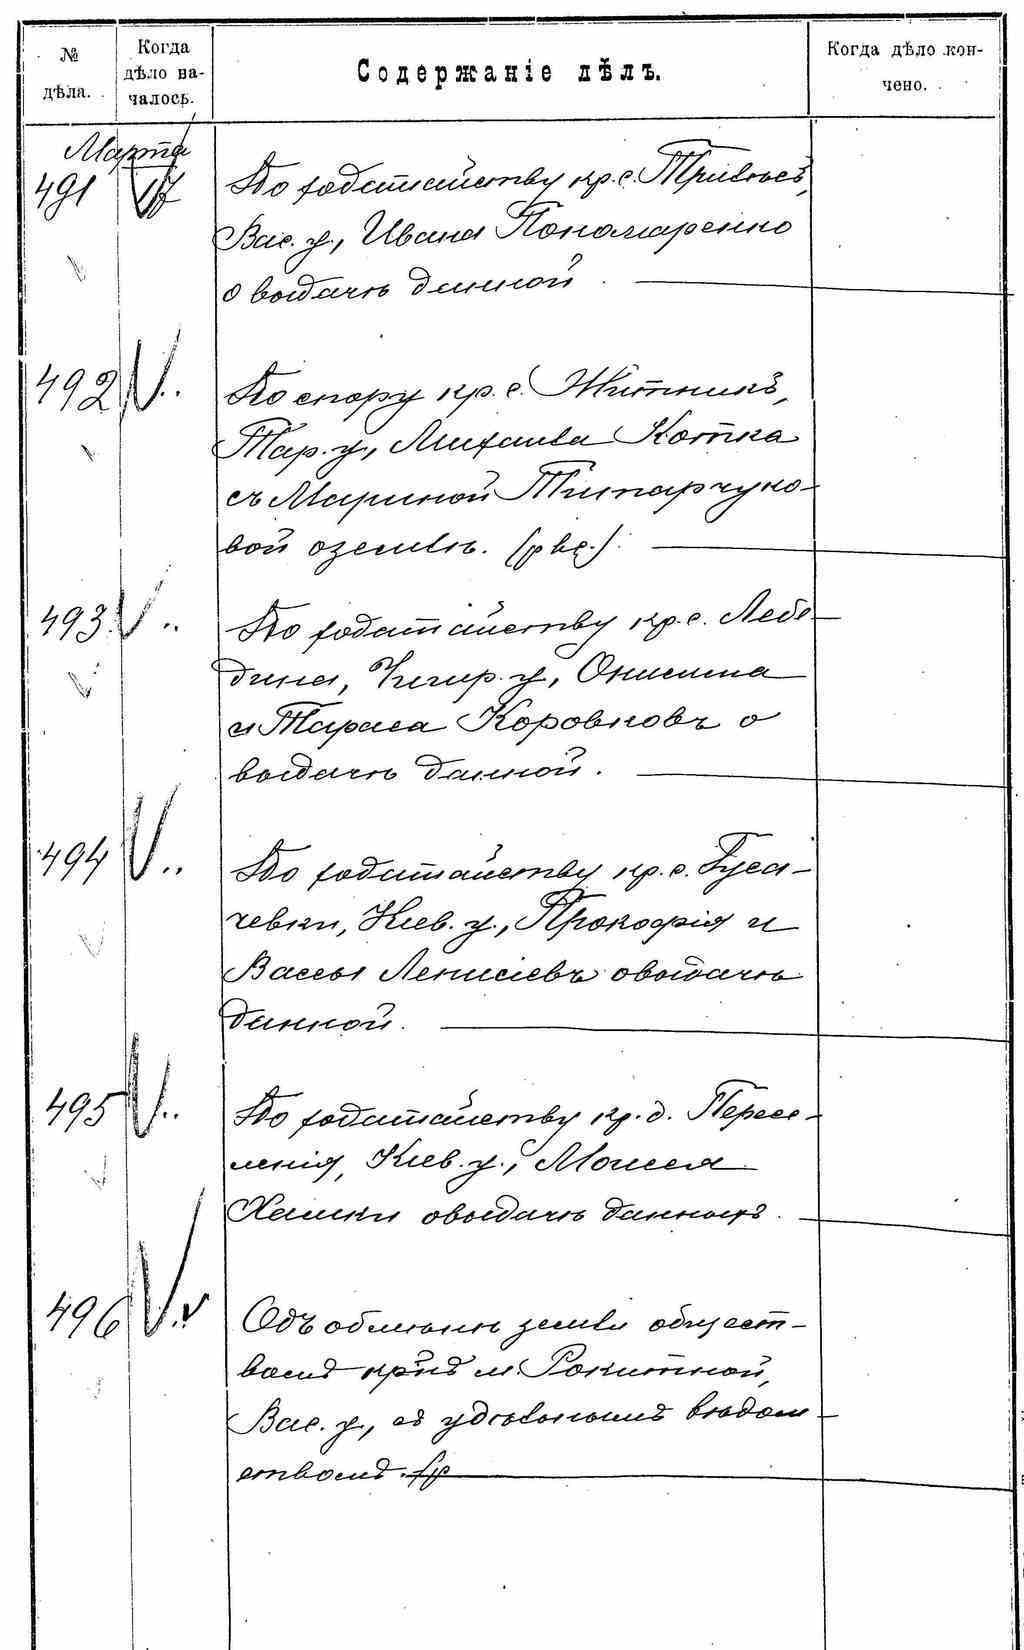 № дѣла.
Когда дѣло на-
чалось.
Содержаніе дѣлъ.
Когда дѣло кон-
чено.
Марта
491 17
По ходатайству кр. с.
Вас. у., Ивана Пономаренко
о выдачѣ данной.
492 "
По спору кр. с. Житникъ,
Тар. у., Михаила Котка
съ Мариной
вой о землѣ.
493 "
По ходатайству кр. с. Лебе-
дина, Чигир. у., Онисима
и Тараса Коровковъ о
выдачѣ данной.
494 "
По ходатайству кр. с. Гуса-
чевки, Кіев. у., Прокофія и
Вассы Денисіевъ о выдачѣ
данной.
495 "
По ходатайству кр. д. Пересе-
ленія, Кіев. у., Моисея
Хамки о выдачѣ данныхъ.
496 "
Объ обмѣнѣ земли общест-
вомъ кр-нъ м. Рокитной,
Вас. у., съ удѣльнымъ вѣдом-
ствомъ.